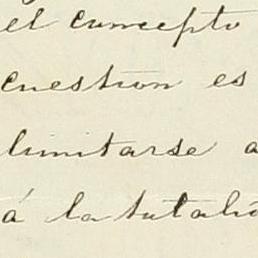 el concepto
cuestion es
limitarse a
á la tutali